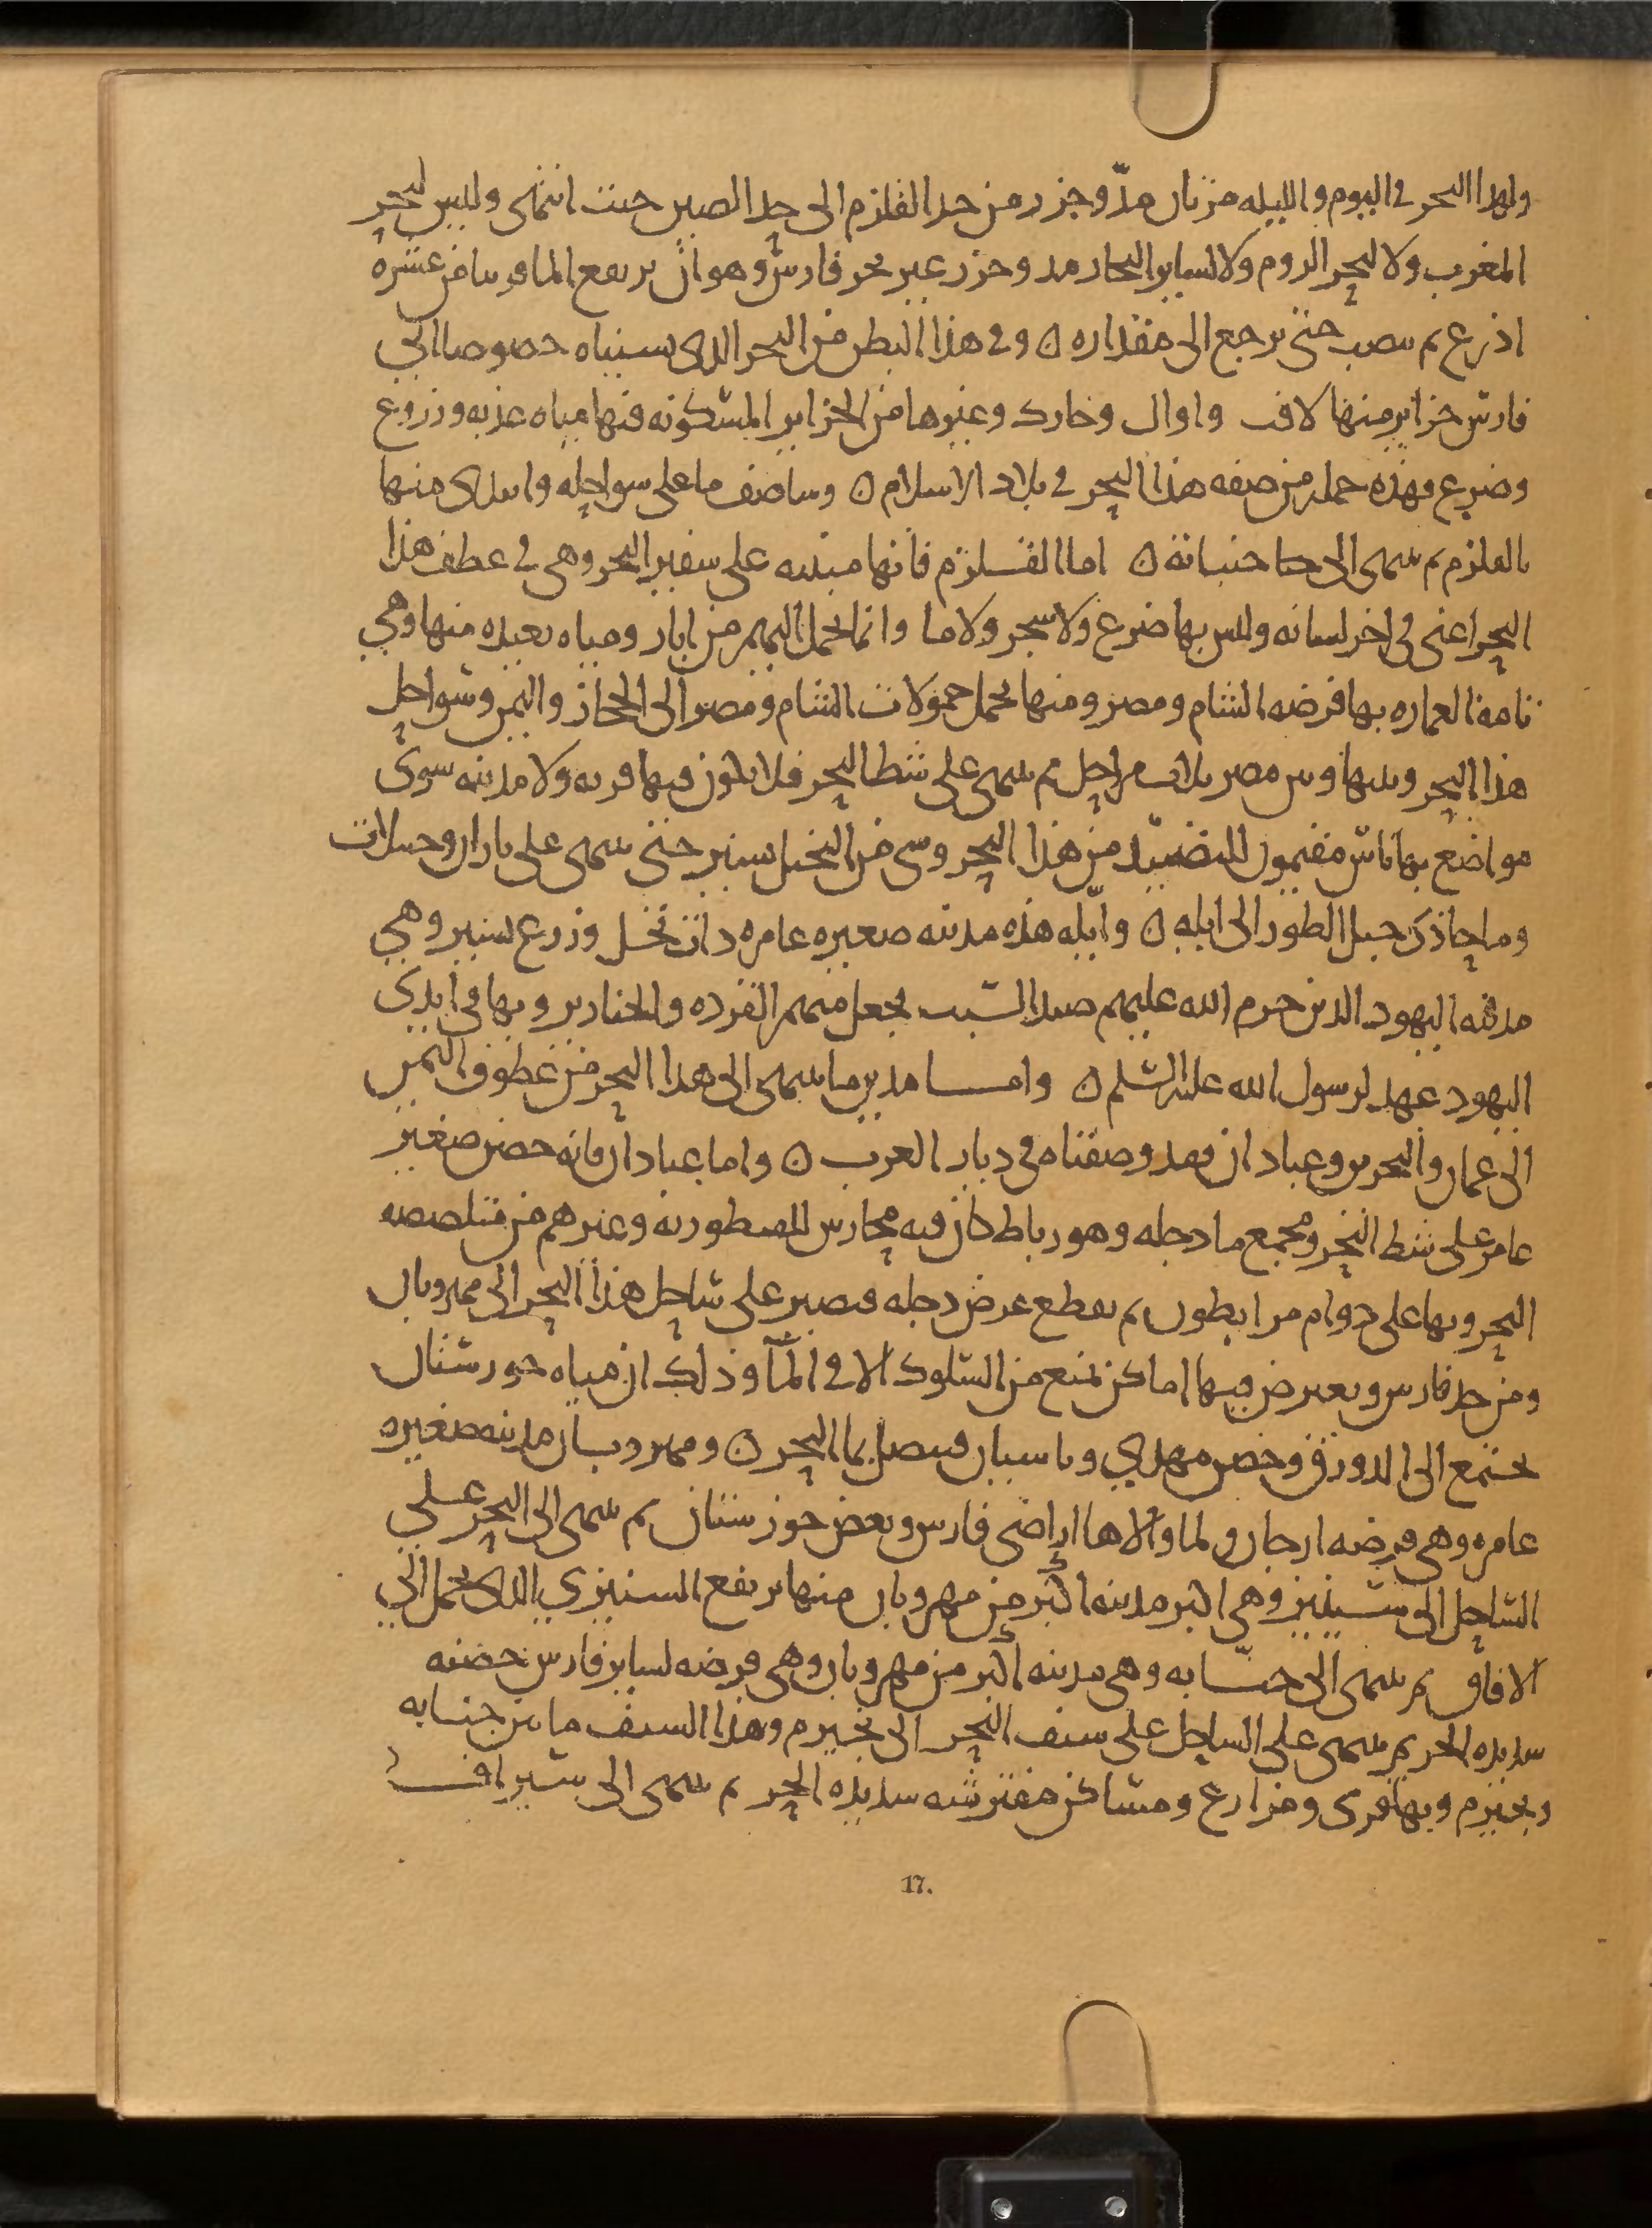 ولهذا البحر في اليوم والليله مرتان مدّ وجزر من حد القلزم الى حد الصين حيث انتهى وليس لبحر
المغرب ولا لبحر الروم ولا لساير البحار مد وجزر غير بحر فارس وهو ان يرتفع الما قريبا من عشره
اذرع ثم ينصب حتى يرجع الى مقداره ن وفي هذا البطن من البحر الذى نسبناه خصوصا الى
فارس جزاير منها لافت واوال وخارك وغيرها من الجزاير المسكونه فيها مياه عذبه وزروع
وضرع فهذه جمله من صفه هذا البحر في بلاد الاسلام ن وساصف ما على سواحله وابتدى منها
بالقلزم ثم ينتهى الى حيث ن اما القلزم فانها مدينه على شفير البحر وهى في عطف هذا
البحر اعنى في اخر لسانه وليس بها ضرع ولا شجر ولا ما وانما يحمل اليهم من ابار ومياه بعيده منها وهي
تامة العماره بها فرضه الشام ومصر ومنها يحمل حمولات الشام ومصر الى الحجاز واليمن وسواحل
هذا البحر وبينها وبين مصر ثلاث مراحل ثم ينتهى على شط البحر فلا يكون فيها قريه ولا مدينه سوى
مواضع بها ناس مقيمون للتصيّد من هذا البحر وشى من النخيل يسير حتى ينتهى على تاران وجبيلات
وما حاذى جبل الطور الى ايله ن وايله هذه مدينه صغيره عامره ذات نخل وزرع يسير وهي
مدينه اليهود الذين حرم الله عليهم صيد السبت فجعل منهم القرده والخنازير وبها في ايدى
اليهود عهد لرسول الله عليه السلم ن واما مدين ما ينتهى الى هذا البحر من عطوف اليمن
الى عمان والبحرين وعبادان فقد وصفناه في ديار العرب ن واما عبادان فانه حصن صغير
عامر على شط البحر ومجمع ما دجله وهو رباط كان فيه محارس للصفوريه وغيرهم من متلصصه
البحر وبها على دوام مرابطون ثم يقطع عرض دجله فيصير على ساحل هذا البحر الى مهروبان
ومن حد فارس ويعرض فيها اماكن تمنع من السلوك الا في المآ وذلك ان مياه خورستان
تجتمع الى الدورق وحصن مهدي وباسيان فيتصل بما البحر ن ومهروبان مدينه صغيره
عامره وهى فرضه ارجان ولما والاها اراضى فارس وبعض خوزستان ثم ينتهى الى البحر على
الساحل الى سينيز وهى اكبر مدينه اكبر من مهروبان منها يرتفع السينيزي الذى يحمل الى
الافاق ثم ينتهى الى جنّابه وهى مدينه اكبر من مهروبان وهى فرضه لساير فارس خصبه
شديده الحر ثم ينتهى على الساحل على سيف البحر الى نجيرم وهذا السيف ما بين جنابه
ونجيرم وبها قرى ومزارع ومساكن مفترشه شديده الحر ثم ينتهى الى سيراف
17.